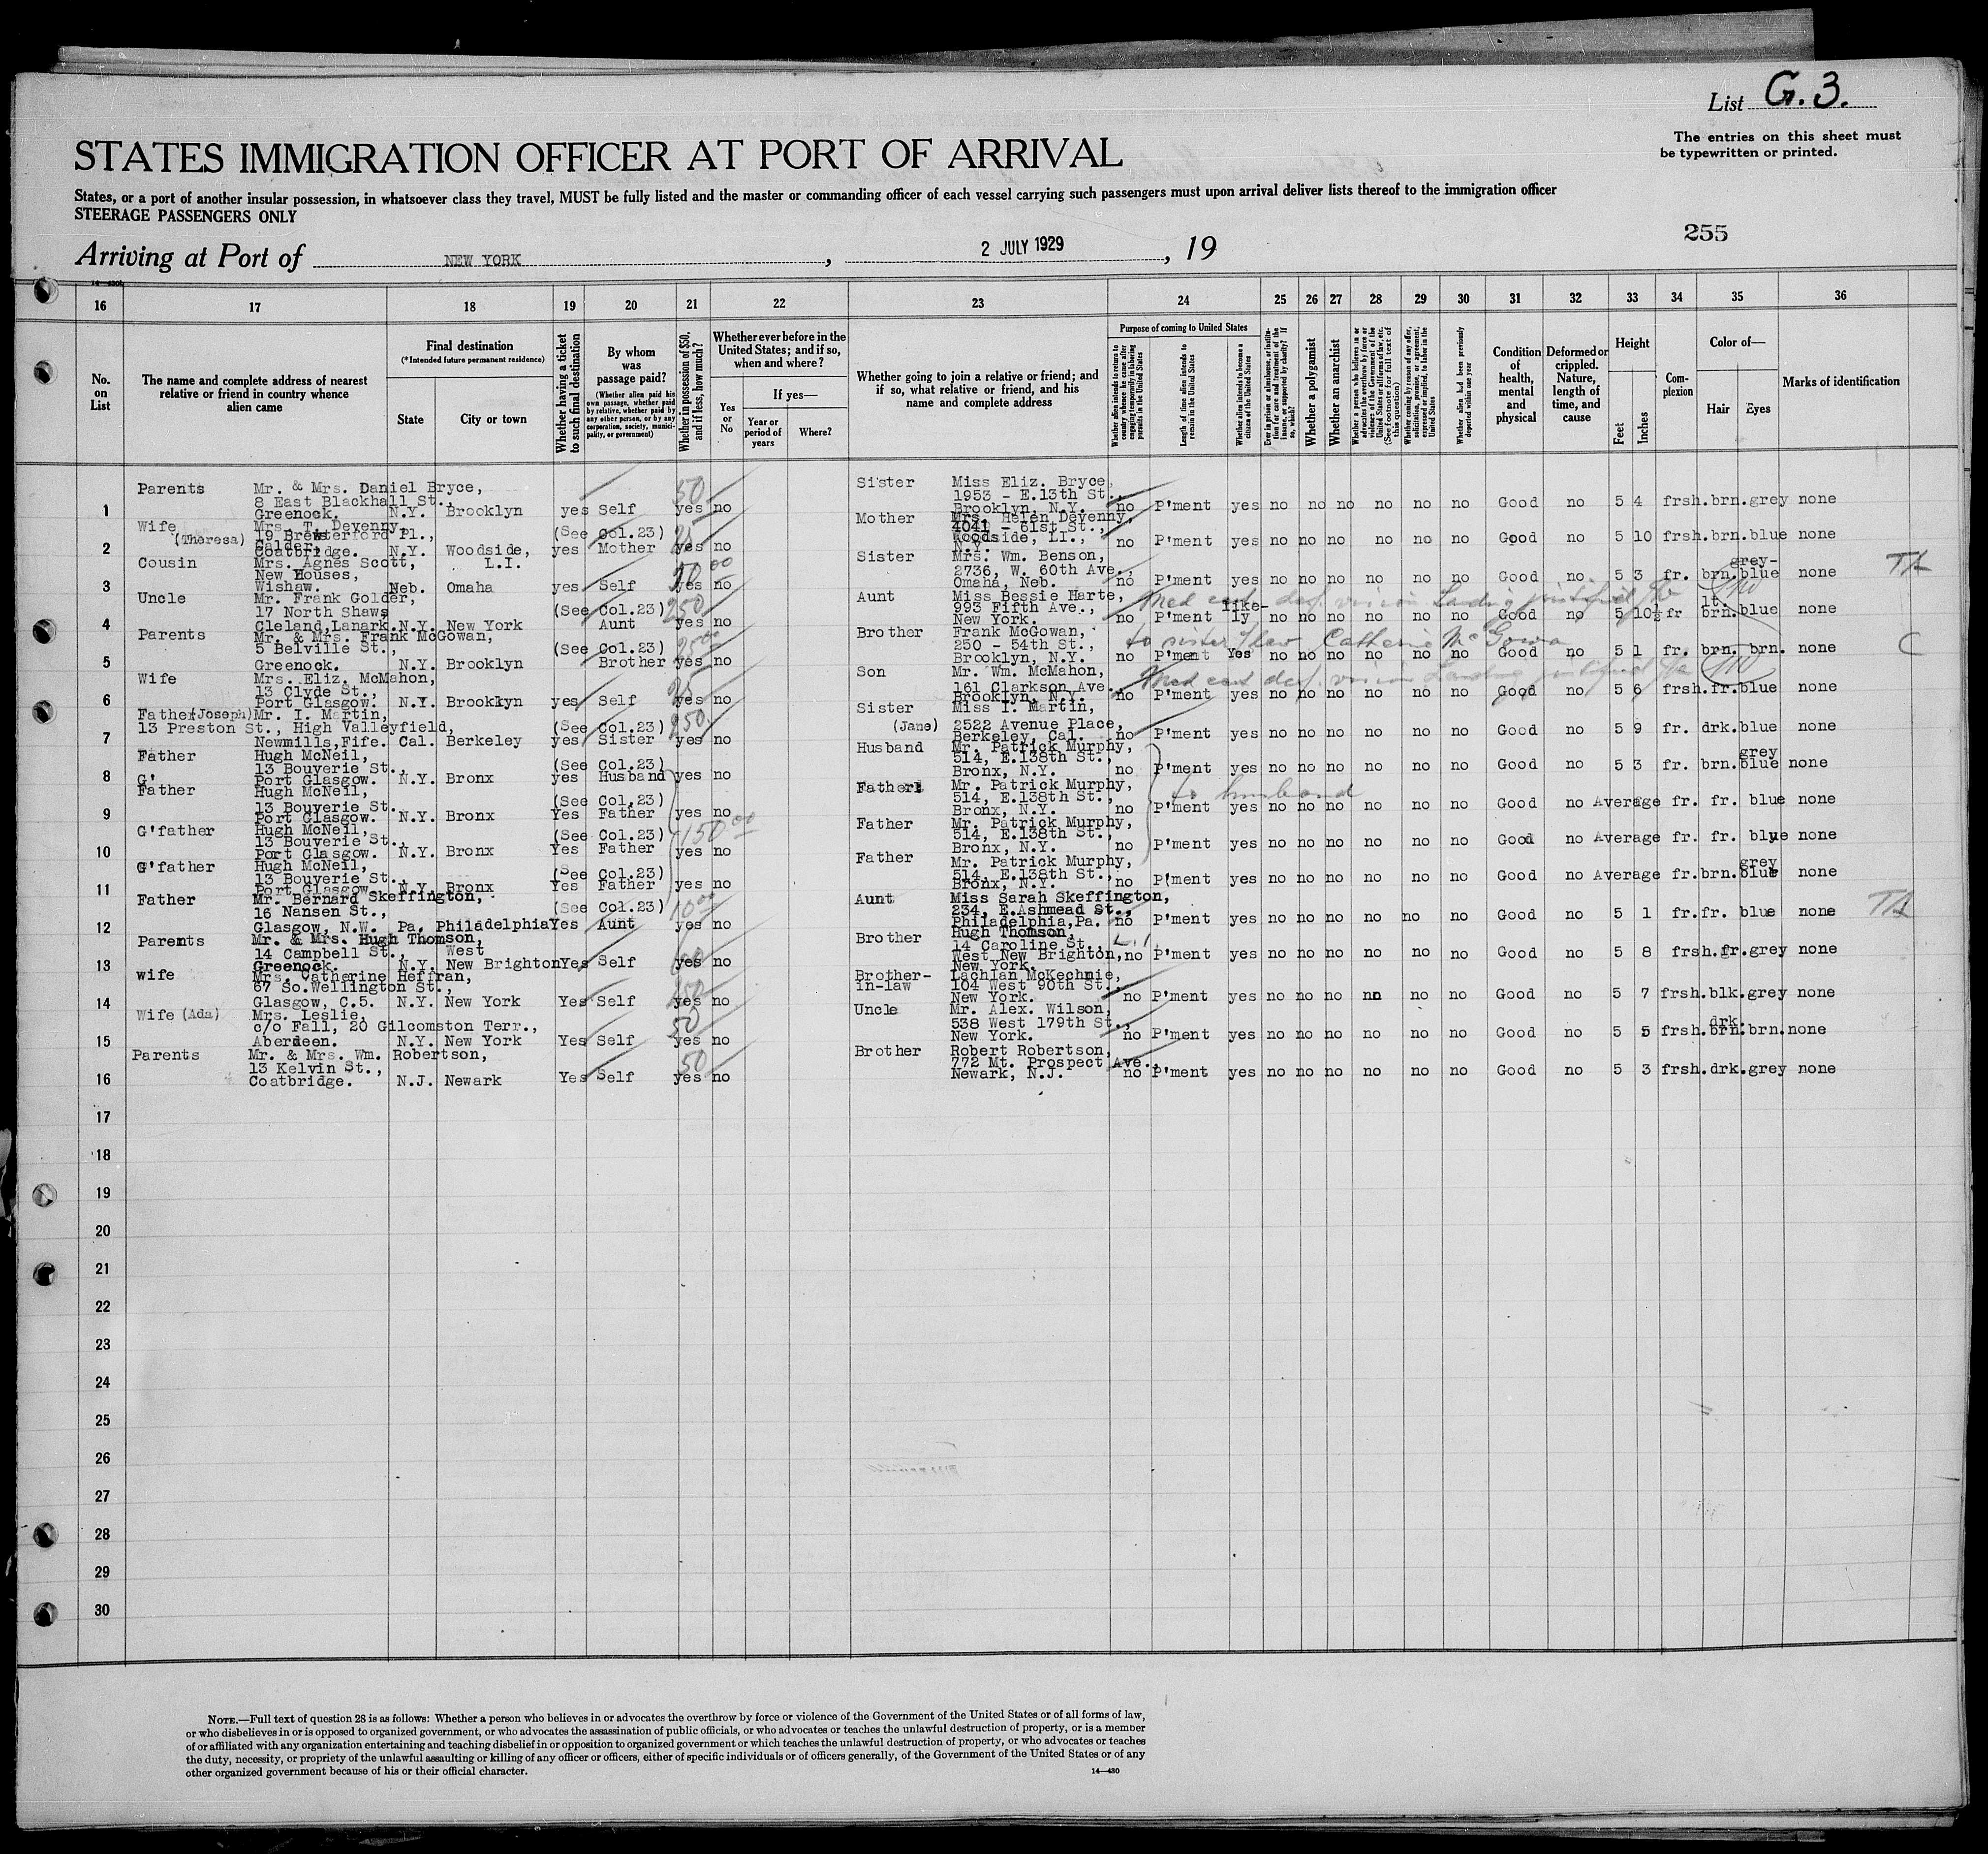 List G.3.
The entries on this sheet must
be typewritten or printed.
STATES IMMIGRATION OFFICER AT PORT OF ARRIVAL
States, or a port of another insular possession, in whatsoever class they travel, MUST be fully listed and the master or commanding officer of each vessel carrying such passengers must upon arrival deliver lists thereof to the immigration officer
STEERAGE PASSENGERS ONLY
255
Arriving at Port of NEW YORK , 2 JULY 1929 , 19
16 17 18 19 20 21 22 23 24 25 26 27 28 29 30 31 32 33 34 35 36
No. on List
The name and complete address of nearest relative or friend in country whence alien came
Final destination
(*Intended future permanent residence)
State
City or town
Whether having a ticket to such final destination
By whom was passage paid?
(Whether alien paid his own passage, whether paid by relative, whether paid by any other person, or by any corporation, society, municipality, or government)
Whether in possession of $50, and if less, how much?
Whether ever before in the United States; and if so, when and where?
Yes or No
If yes—
Year or period of years
Where?
Whether going to join a relative or friend; and if so, what relative or friend, and his name and complete address
Purpose of coming to United States
Whether alien intends to return to country whence he came after engaging temporarily in laboring pursuits in the United States
Length of time alien intends to remain in the United States
Whether alien intends to become a citizen of the United States
Ever in prison or almshouse, or institution for care and treatment of the insane, or supported by charity? If so, which?
Whether a polygamist
Whether an anarchist
Whether a person who believes in or advocates the overthrow by force or violence of the Government of the United States or all forms of law, etc. (See footnote for full text of this question)
Whether coming by reason of any offer, solicitation, promise, or agreement, expressed or implied, to labor in the United States
Whether alien had been previously deported within one year
Condition of health, mental and physical
Deformed or crippled. Nature, length of time, and cause
Height
Feet
Inches
Complexion
Color of—
Hair
Eyes
Marks of identification
1 Parents Mr. & Mrs. Daniel Bryce, 8 East Blackhall St., Greenock. N.Y. Brooklyn yes Self 50 yes no Sister Miss Eliz. Bryce, 1953 - E.13th St., Brooklyn, N.Y. no P'ment yes no no no no no no Good no 5 4 frsh. brn. grey none
2 Wife (Theresa) Mrs. T. Devenny, 19 Brewsterford Pl., Calder, Coatbridge. N.Y. Woodside, L.I. (See Col.23) yes Mother yes no Mother Mrs. Helen Devenny, 4041 - 61st St., Woodside, LI., N.Y. no P'ment yes no no no no no no Good no 5 10 frsh. brn. blue none
3 Cousin Mrs. Agnes Scott, New Houses, Wishaw. Neb. Omaha yes Self yes no Sister Mrs. Wm. Benson, 2736, W. 60th Ave., Omaha, Neb. no P'ment yes no no no no no no Good no 5 3 fr. brn. grey-blue none
4 Uncle Mr. Frank Golder, 17 North Shaws Cleland, Lanark. N.Y. New York (See Col.23) Aunt 250 yes no Aunt Miss Bessie Harte, 993 Fifth Ave., New York. no P'ment like-ly no no no no no no Good no 5 10½ fr lt. brn. blue none
Med cert def. vision Landing justified
5 Parents Mr. & Mrs. Frank McGowan, 5 Belville St., Greenock. N.Y. Brooklyn (See Col.23) Brother yes no Brother Frank McGowan, 250 - 54th St., Brooklyn, N.Y. no P'ment Yes no no no no no no Good no 5 1 fr. brn. brn. none
to sister Catherine McGowan
6 Wife Mrs. Eliz. McMahon, 13 Clyde St., Port Glasgow. N.Y. Brooklyn yes Self yes no Son Mr. Wm. McMahon, 161 Clarkson Ave. Brooklyn, N.Y. no P'ment yes no no no no no no Good no 5 6 frsh. fr. blue none
Med cert def. vision Landing justified
7 Father (Joseph) Mr. I. Martin, 13 Preston St., High Valleyfield, Newmills, Fife. Cal. Berkeley (See Col.23) yes Sister 250 yes no Sister (Jane) Miss I. Martin, 2522 Avenue Place, Berkeley, Cal. no P'ment yes no no no no no no Good no 5 9 fr. drk. blue none
8 Father Hugh McNeil, 13 Bouverie St., Port Glasgow. N.Y. Bronx (See Col.23) yes Husband yes no Husband Mr. Patrick Murphy, 514, E.138th St., Bronx, N.Y. no P'ment yes no no no no no no Good no 5 3 fr. brn. grey blue none
to husband
9 G' Father Hugh McNeil, 13 Bouverie St. Port Glasgow. N.Y. Bronx (See Col.23) Yes Father yes no Father Mr. Patrick Murphy, 514, E.138th St., Bronx, N.Y. no P'ment yes no no no no no no Good no Average fr. fr. blue none
150
10 G'father Hugh McNeil, 13 Bouverie St., Port Glasgow. N.Y. Bronx (See Col.23) Yes Father yes no Father Mr. Patrick Murphy, 514, E.138th St., Bronx, N.Y. no P'ment yes no no no no no no Good no Average fr. fr. blue none
11 G'father Hugh McNeil, 13 Bouverie St., Port Glasgow. N.Y. Bronx (See Col.23) Yes Father yes no Father Mr. Patrick Murphy, 514, E.138th St., Bronx, N.Y. no P'ment yes no no no no no no Good no Average fr. brn. grey blue none
12 Father Mr. Bernard Skeffington, 16 Nansen St., Glasgow, N.W. Pa. Philadelphia (See Col.23) Yes Aunt 10 yes no Aunt Miss Sarah Skeffington, 234, E.Ashmead St., Philadelphia, Pa. no P'ment yes no no no no no no Good no 5 1 fr. fr. blue none
13 Parents Mr. & Mrs. Hugh Thomson, 14 Campbell St., Greenock. N.Y. West New Brighton Yes Self yes no Brother Hugh Thomson, 14 Caroline St., West New Brighton, New York. no P'ment yes no no no no no no Good no 5 8 frsh. fr. grey none
14 wife Mrs. Catherine Heffran, 67 So.Wellington St., Glasgow, C.5. N.Y. New York Yes Self yes no Brother-in-law Lachlan McKechnie, 104 West 90th St., New York. no P'ment yes no no no no no no Good no 5 7 frsh. blk. grey none
15 Wife (Ada) Mrs. Leslie, c/o Fall, 20 Gilcomston Terr., Aberdeen. N.Y. New York Yes Self 50 yes no Uncle Mr. Alex. Wilson, 538 West 179th St., New York. no P'ment yes no no no no no no Good no 5 5 frsh. drk. brn. brn. none
16 Parents Mr. & Mrs. Wm. Robertson, 13 Kelvin St., Coatbridge. N.J. Newark Yes Self 50 yes no Brother Robert Robertson, 772 Mt. Prospect Ave., Newark, N.J. no P'ment yes no no no no no no Good no 5 3 frsh. drk. grey none
17
18
19
20
21
22
23
24
25
26
27
28
29
30
NOTE.—Full text of question 28 is as follows: Whether a person who believes in or advocates the overthrow by force or violence of the Government of the United States or of all forms of law,
or who disbelieves in or is opposed to organized government, or who advocates the assassination of public officials, or who advocates or teaches the unlawful destruction of property, or is a member
of or affiliated with any organization entertaining and teaching disbelief in or opposition to organized government or which teaches the unlawful destruction of property, or who advocates or teaches
the duty, necessity, or propriety of the unlawful assaulting or killing of any officer or officers, either of specific individuals or of officers generally, of the Government of the United States or of any
other organized government because of his or their official character.
14—430